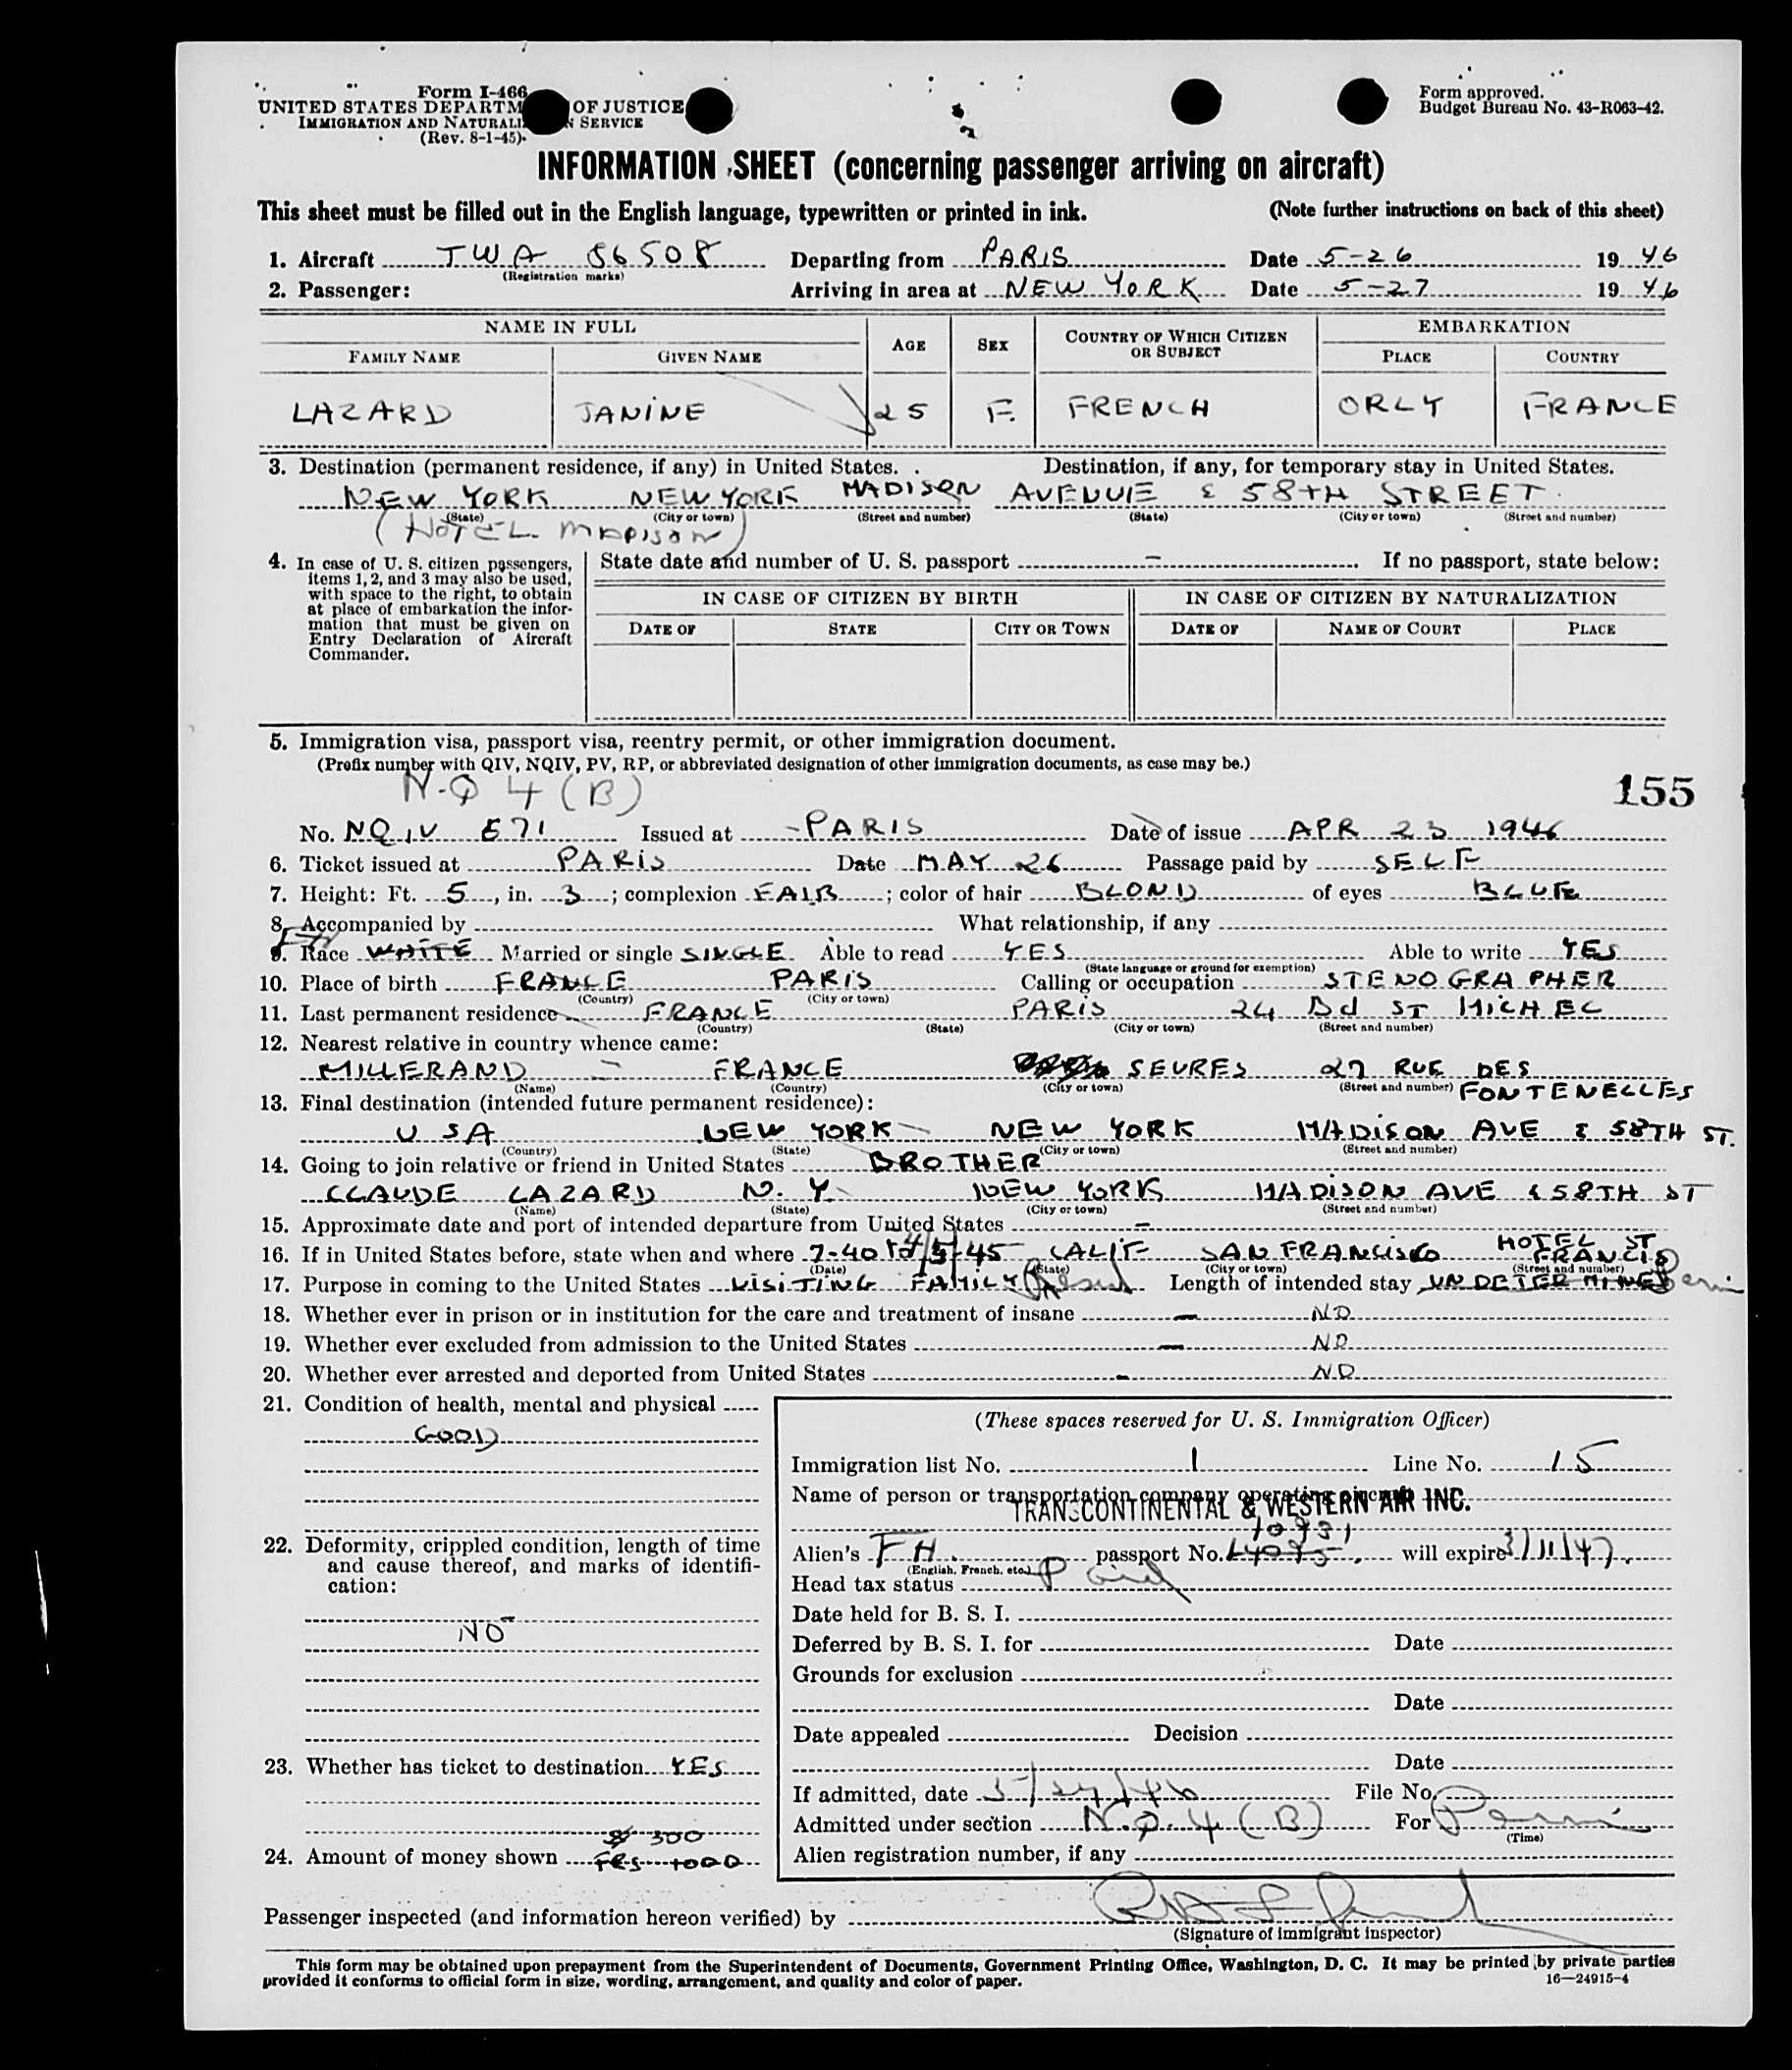 Form I-466
UNITED STATES DEPARTM OF JUSTICE
IMMIGRATION AND NATURALI N SERVICE
(Rev. 8-1-45)
Form approved.
Budget Bureau No. 43-R063-42.
INFORMATION SHEET (concerning passenger arriving on aircraft)
This sheet must be filled out in the English language, typewritten or printed in ink. (Note further instructions on back of this sheet)
1. Aircraft TWA 86508 Departing from PARIS Date 5-26 1946
(Registration marks)
2. Passenger: Arriving in area at NEW YORK Date 5-27 1946
NAME IN FULL AGE SEX COUNTRY OF WHICH CITIZEN OR SUBJECT EMBARKATION
FAMILY NAME GIVEN NAME PLACE COUNTRY
LAZARD JANINE 25 F. FRENCH ORLY FRANCE
3. Destination (permanent residence, if any) in United States. Destination, if any, for temporary stay in United States.
NEW YORK NEW YORK MADISON AVENUE & 58TH STREET.
(State) (City or town) (Street and number) (State) (City or town) (Street and number)
(HOTEL MADISON)
4. In case of U. S. citizen passengers, items 1, 2, and 3 may also be used, with space to the right, to obtain at place of embarkation the information that must be given on Entry Declaration of Aircraft Commander.
State date and number of U. S. passport – . If no passport, state below:
IN CASE OF CITIZEN BY BIRTH IN CASE OF CITIZEN BY NATURALIZATION
DATE OF STATE CITY OR TOWN DATE OF NAME OF COURT PLACE
5. Immigration visa, passport visa, reentry permit, or other immigration document.
(Prefix number with QIV, NQIV, PV, RP, or abbreviated designation of other immigration documents, as case may be.)
N-Q 4 (B) 155
No. NQIV 571 Issued at PARIS Date of issue APR 23 1946
6. Ticket issued at PARIS Date MAY 26 Passage paid by SELF
7. Height: Ft. 5, in. 3; complexion FAIR; color of hair BLOND of eyes BLUE
8. Accompanied by What relationship, if any
9. Race WHITE Married or single SINGLE Able to read YES Able to write YES
(State language or ground for exemption)
10. Place of birth FRANCE PARIS Calling or occupation STENOGRAPHER
(Country) (City or town)
11. Last permanent residence FRANCE PARIS 24 Bd ST MICHEL
(Country) (State) (City or town) (Street and number)
12. Nearest relative in country whence came:
MILLERAND – FRANCE SEVRES 27 RUE DES FONTENELLES
(Name) (Country) (City or town) (Street and number)
13. Final destination (intended future permanent residence):
USA NEW YORK NEW YORK MADISON AVE & 58TH ST.
(Country) (State) (City or town) (Street and number)
14. Going to join relative or friend in United States BROTHER
CLAUDE LAZARD N.Y. NEW YORK MADISON AVE & 58TH ST
(Name) (State) (City or town) (Street and number)
15. Approximate date and port of intended departure from United States –
16. If in United States before, state when and where 7-40 to 4/5/45 CALIF SAN FRANCISCO HOTEL ST FRANCIS
(Date) (State) (City or town) (Street and number)
17. Purpose in coming to the United States VISITING FAMILY Length of intended stay UNDETERMINED
18. Whether ever in prison or in institution for the care and treatment of insane – NO
19. Whether ever excluded from admission to the United States – NO
20. Whether ever arrested and deported from United States – NO
21. Condition of health, mental and physical
GOOD
22. Deformity, crippled condition, length of time and cause thereof, and marks of identification:
NO
23. Whether has ticket to destination YES
$ 300
24. Amount of money shown FRS 1000
(These spaces reserved for U. S. Immigration Officer)
Immigration list No. 1 Line No. 15
Name of person or transportation company operating aircraft
TRANSCONTINENTAL & WESTERN AIR INC.
Alien's passport No. will expire 3/11/47.
(English, French, etc.)
Head tax status Paid
Date held for B. S. I.
Deferred by B. S. I. for Date
Grounds for exclusion
Date
Date appealed Decision
Date
If admitted, date 5/27/46 File No.
Admitted under section N.Q. 4 (B) For
(Time)
Alien registration number, if any
Passenger inspected (and information hereon verified) by
(Signature of immigrant inspector)
This form may be obtained upon prepayment from the Superintendent of Documents, Government Printing Office, Washington, D. C. It may be printed by private parties
provided it conforms to official form in size, wording, arrangement, and quality and color of paper. 16—24915-4